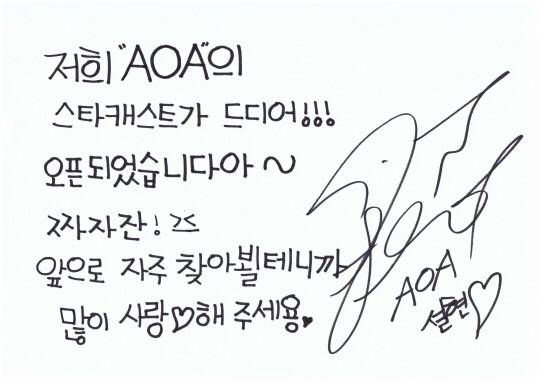 저희 "AOA"의
스타캐스트가 드디어!!!
오픈되었습니다아~
짜자잔! >≤
앞으로 자주 찾아뵐테니까
많이 사랑♡해 주세용♥
AOA
설현♡